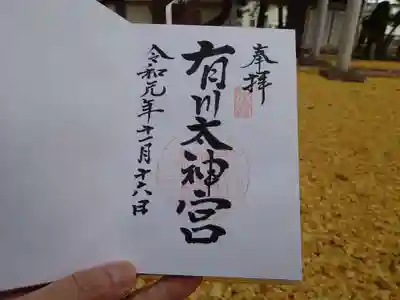 奉拝
有川大神宮
令和元年十一月十六日